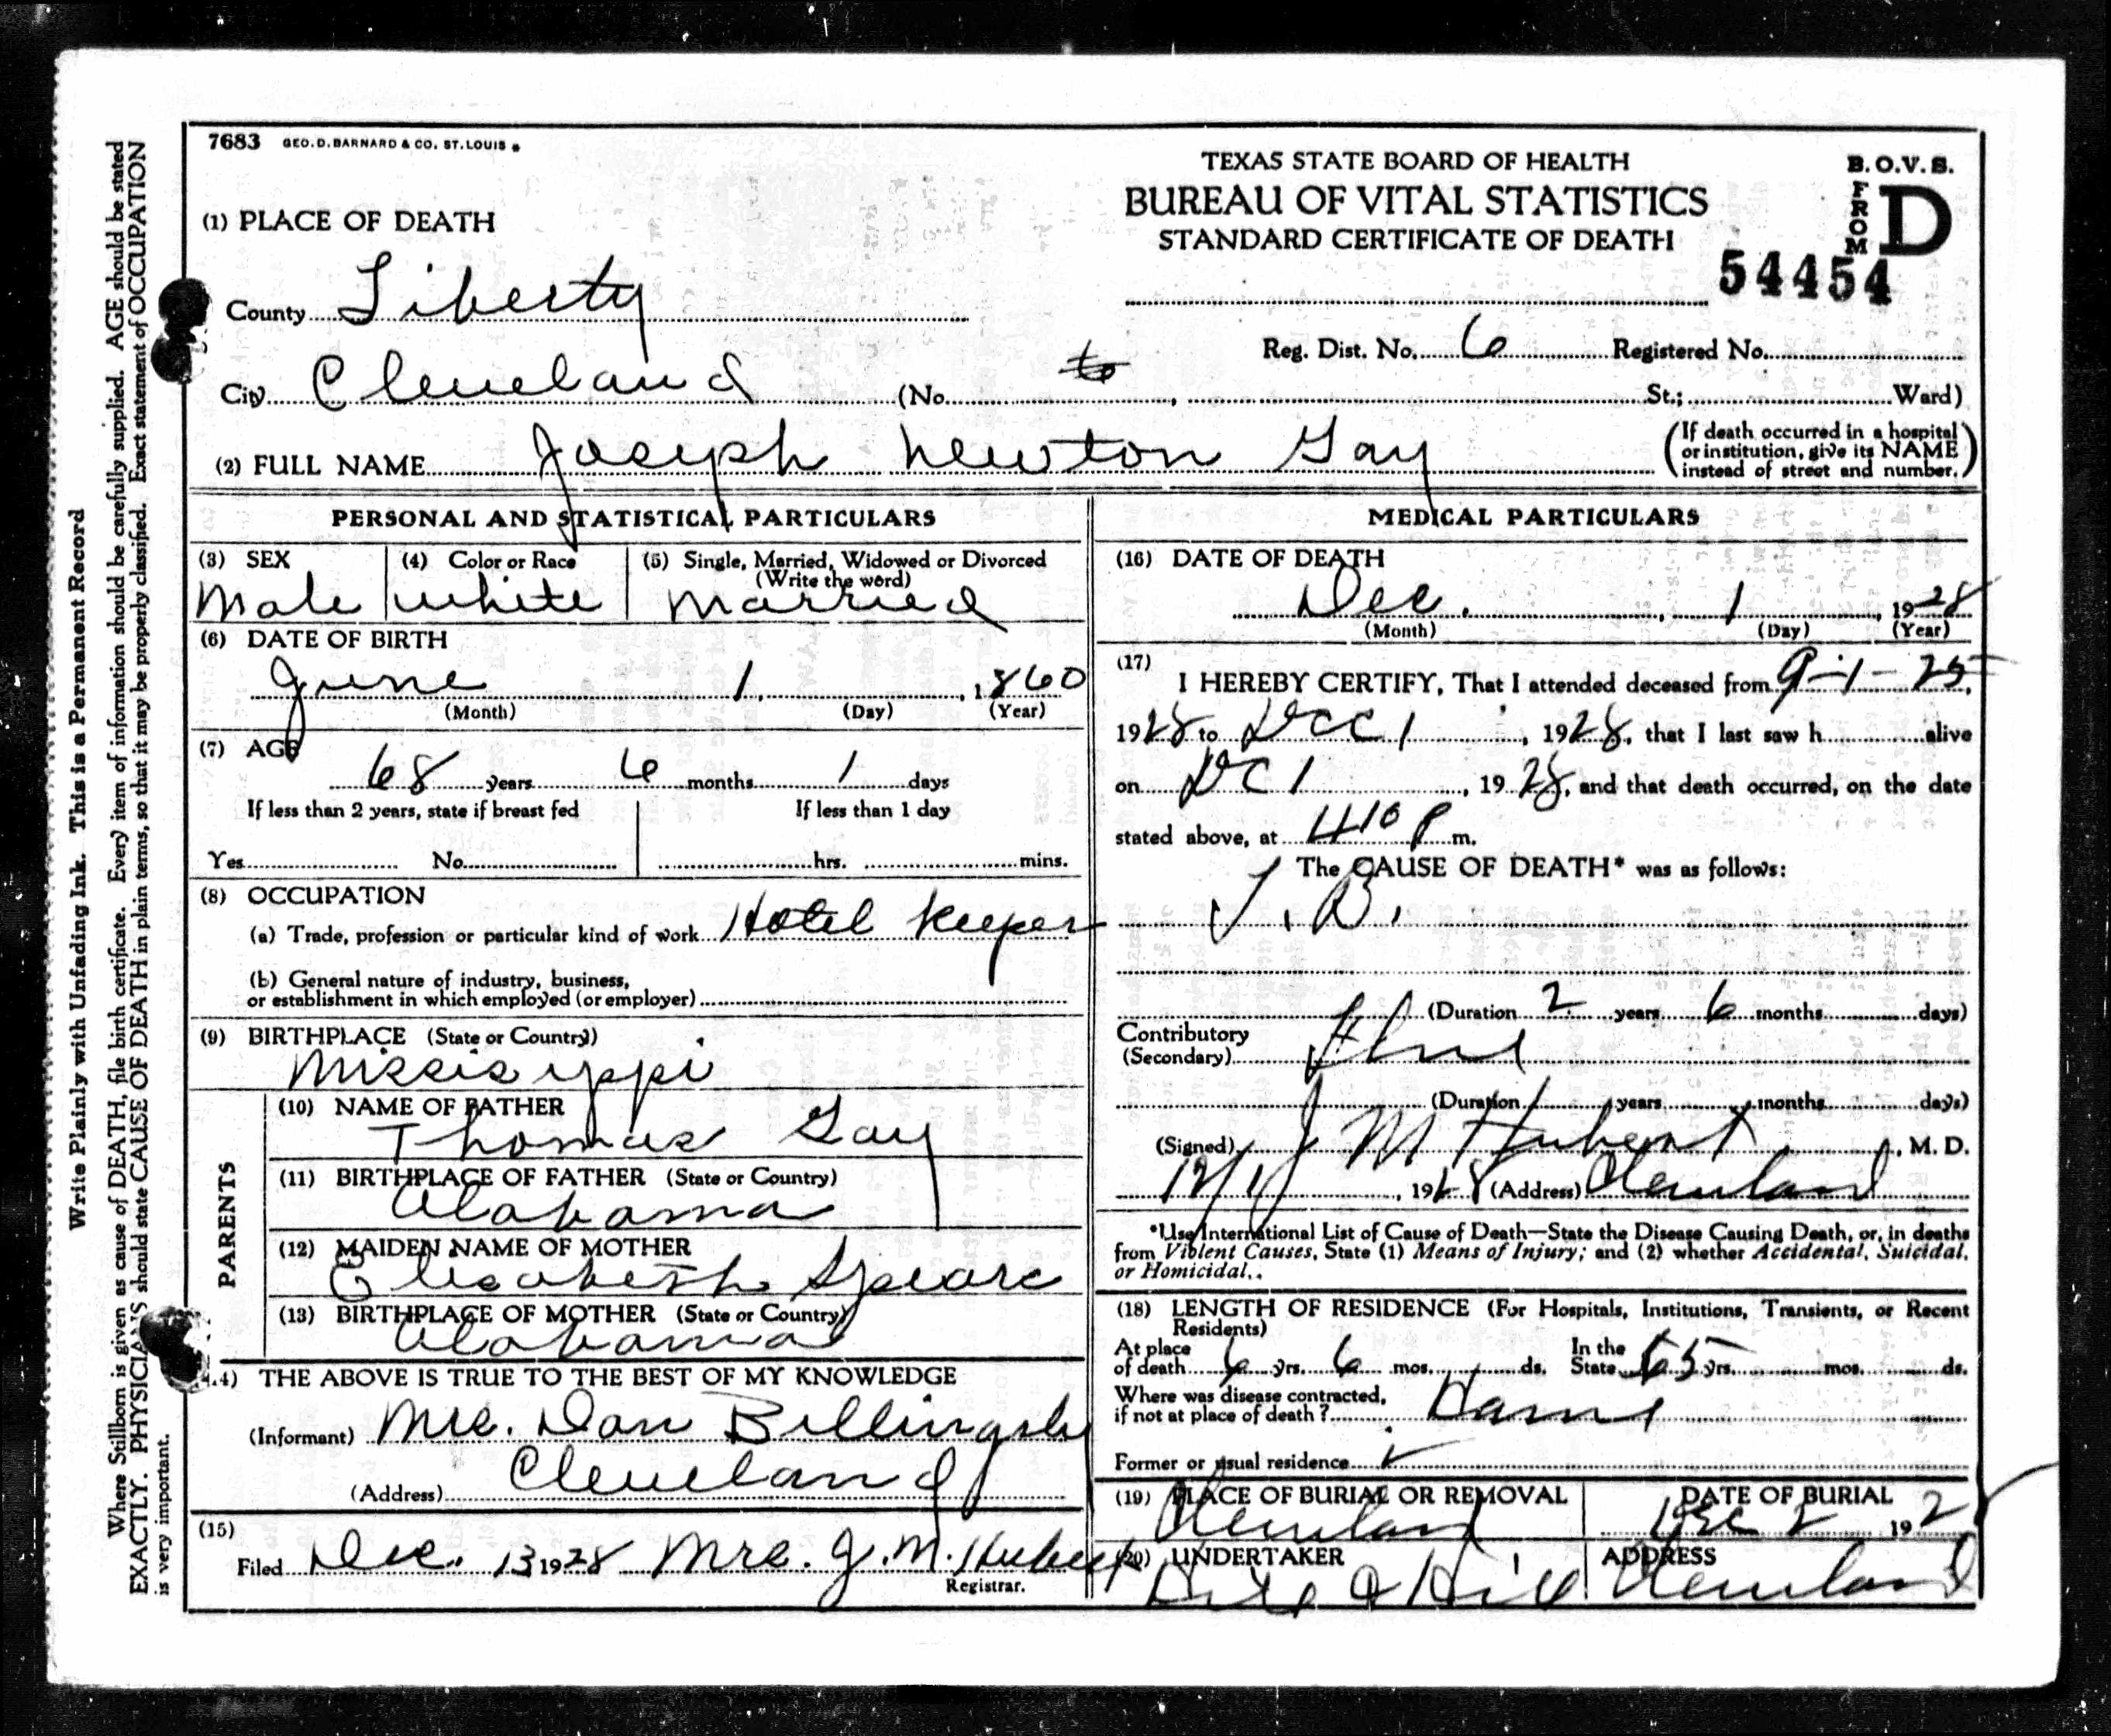 7683 GEO. D. BARNARD & CO. ST. LOUIS
TEXAS STATE BOARD OF HEALTH
BUREAU OF VITAL STATISTICS
STANDARD CERTIFICATE OF DEATH
B.O.V.S.
FROM D
54454
(1) PLACE OF DEATH
County Liberty
Reg. Dist. No. 6 Registered No.
City Cleveland (No. , St.; Ward)
(2) FULL NAME Joseph Newton Gay
(If death occurred in a hospital or institution, give its NAME instead of street and number.)
PERSONAL AND STATISTICAL PARTICULARS
(3) SEX (4) Color or Race (5) Single, Married, Widowed or Divorced
(Write the word)
Male white Married
(6) DATE OF BIRTH
June 1, , 1860
(Month) (Day) (Year)
(7) AGE
68 years 6 months 1 days
If less than 2 years, state if breast fed If less than 1 day
Yes No hrs. mins.
(8) OCCUPATION
(a) Trade, profession or particular kind of work Hotel Keeper
(b) General nature of industry, business,
or establishment in which employed (or employer)
(9) BIRTHPLACE (State or Country)
Missisippi
PARENTS
(10) NAME OF FATHER
Thomas Gay
(11) BIRTHPLACE OF FATHER (State or Country)
Alabama
(12) MAIDEN NAME OF MOTHER
Elisabeth Spears
(13) BIRTHPLACE OF MOTHER (State or Country)
Alabama
(14) THE ABOVE IS TRUE TO THE BEST OF MY KNOWLEDGE
(Informant) Mrs. Dan Billingsly
(Address) Cleveland
(15)
Filed Dec. 13 1928 Mrs. J. M. Hubert
Registrar.
MEDICAL PARTICULARS
(16) DATE OF DEATH
Dec. , 1 , 1928
(Month) (Day) (Year)
(17)
I HEREBY CERTIFY, That I attended deceased from 9-1-25,
1928 to Dec 1 , 1928, that I last saw h alive
on Dc 1 , 1928, and that death occurred, on the date
stated above, at 410 P m.
The CAUSE OF DEATH* was as follows:
T. B.
(Duration 2 years 6 months days)
Contributory
(Secondary) Flue
(Duration years months days)
(Signed) J M Hubert , M. D.
, 1928 (Address) Cleveland
*Use International List of Cause of Death—State the Disease Causing Death, or, in deaths
from Violent Causes, State (1) Means of Injury; and (2) whether Accidental, Suicidal,
or Homicidal.
(18) LENGTH OF RESIDENCE (For Hospitals, Institutions, Transients, or Recent
Residents)
At place of death 6 yrs. 6 mos. ds. In the State 65 yrs. mos. ds.
Where was disease contracted,
if not at place of death?
Former or usual residence
(19) PLACE OF BURIAL OR REMOVAL DATE OF BURIAL
Cleveland Dec 2 1928
(20) UNDERTAKER ADDRESS
Hill Cleveland
Write Plainly with Unfading Ink. This is a Permanent Record
Where Stillborn is given as cause of DEATH, file birth certificate. Every item of information should be carefully supplied. AGE should be stated
EXACTLY. PHYSICIANS should state CAUSE OF DEATH in plain terms, so that it may be properly classified. Exact statement of OCCUPATION
is very important.